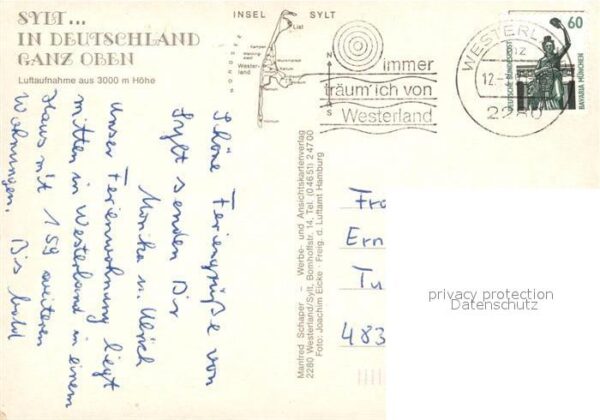 SYLT...
IN DEUTSCHLAND
GANZ OBEN
Luftaufnahme aus 3000 m Höhe
INSEL SYLT
NORDSEE
List
Kampen
Wester-
land
N
S
immer
träum' ich von
Westerland
WESTERL
12.
2280
60
DEUTSCHE BUNDESPOST
BAVARIA MÜNCHEN
Schöne Feriengrüße von
Sylt senden Dir
Monika u. Ulrich
Unser Ferienwohnung liegt
mitten in Westerland in einem
Haus mit 159 weiteren
Wohnungen. Bis bald
Manfred Schaper - Werbe- und Ansichtskartenverlag
2280 Westerland/Sylt, Bomhoffstr. 14, Tel. (0 46 51) 2 47 00
Foto: Joachim Eicke - Freig. d. Luftamt Hamburg
Fra
Ern
Tu
483
privacy protection
Datenschutz